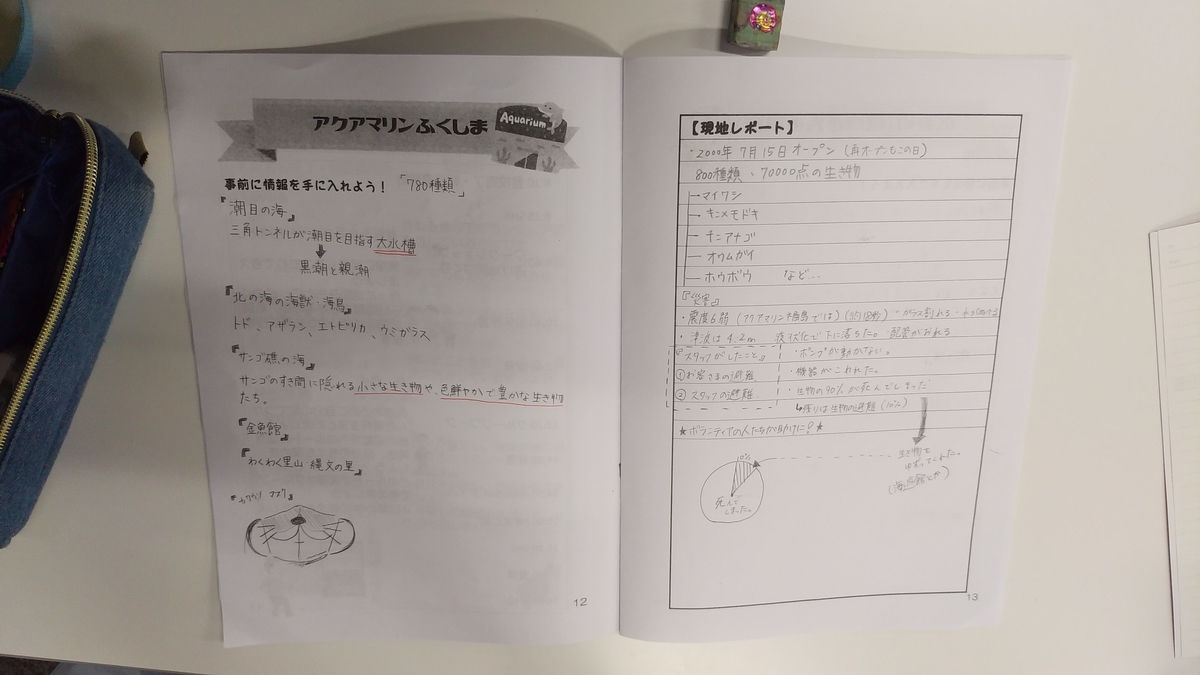 アクアマリンふくしま
Aquarium
事前に情報を手に入れよう! 「780種類」
『潮目の海』
三角トンネルが潮目を目指す大水槽
黒潮と親潮
『北の海の海獣・海鳥』
トド、アザラシ、エトピリカ、ウミガラス
『サンゴ礁の海』
サンゴのすき間に隠れる小さな生き物や、色鮮やかで豊かな生き物
たち。
『金魚館』
『わくわく里山・縄文の里』
12
【現地レポート】
・2000年 7月15日オープン (再オープンもこの日)
800種類、70000点の生き物
マイワシ
キンメモドキ
チンアナゴ
オウムガイ
ホウボウ など…
『災害』
・震度6弱 (アクアマリン福島では) ・ガラス割れる
・津波は4.2m 液状化で下に落ちた。配管がおれる
『スタッフがしたこと』 ・ポンプが動かない。
①お客さまの避難 ・機器がこわれた。
②スタッフの避難 ・生物の90%が死んでしまった
↳残りは生物の避難(10%)
★ボランティアの人たちが助けに!★
10%
死んで
しまった。
生き物を
ゆずってくれた。
13